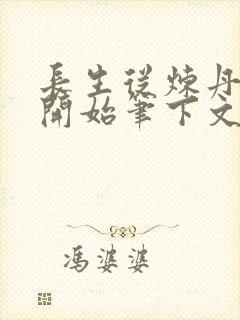 長生從煉丹
開始筆下文
馮婆婆